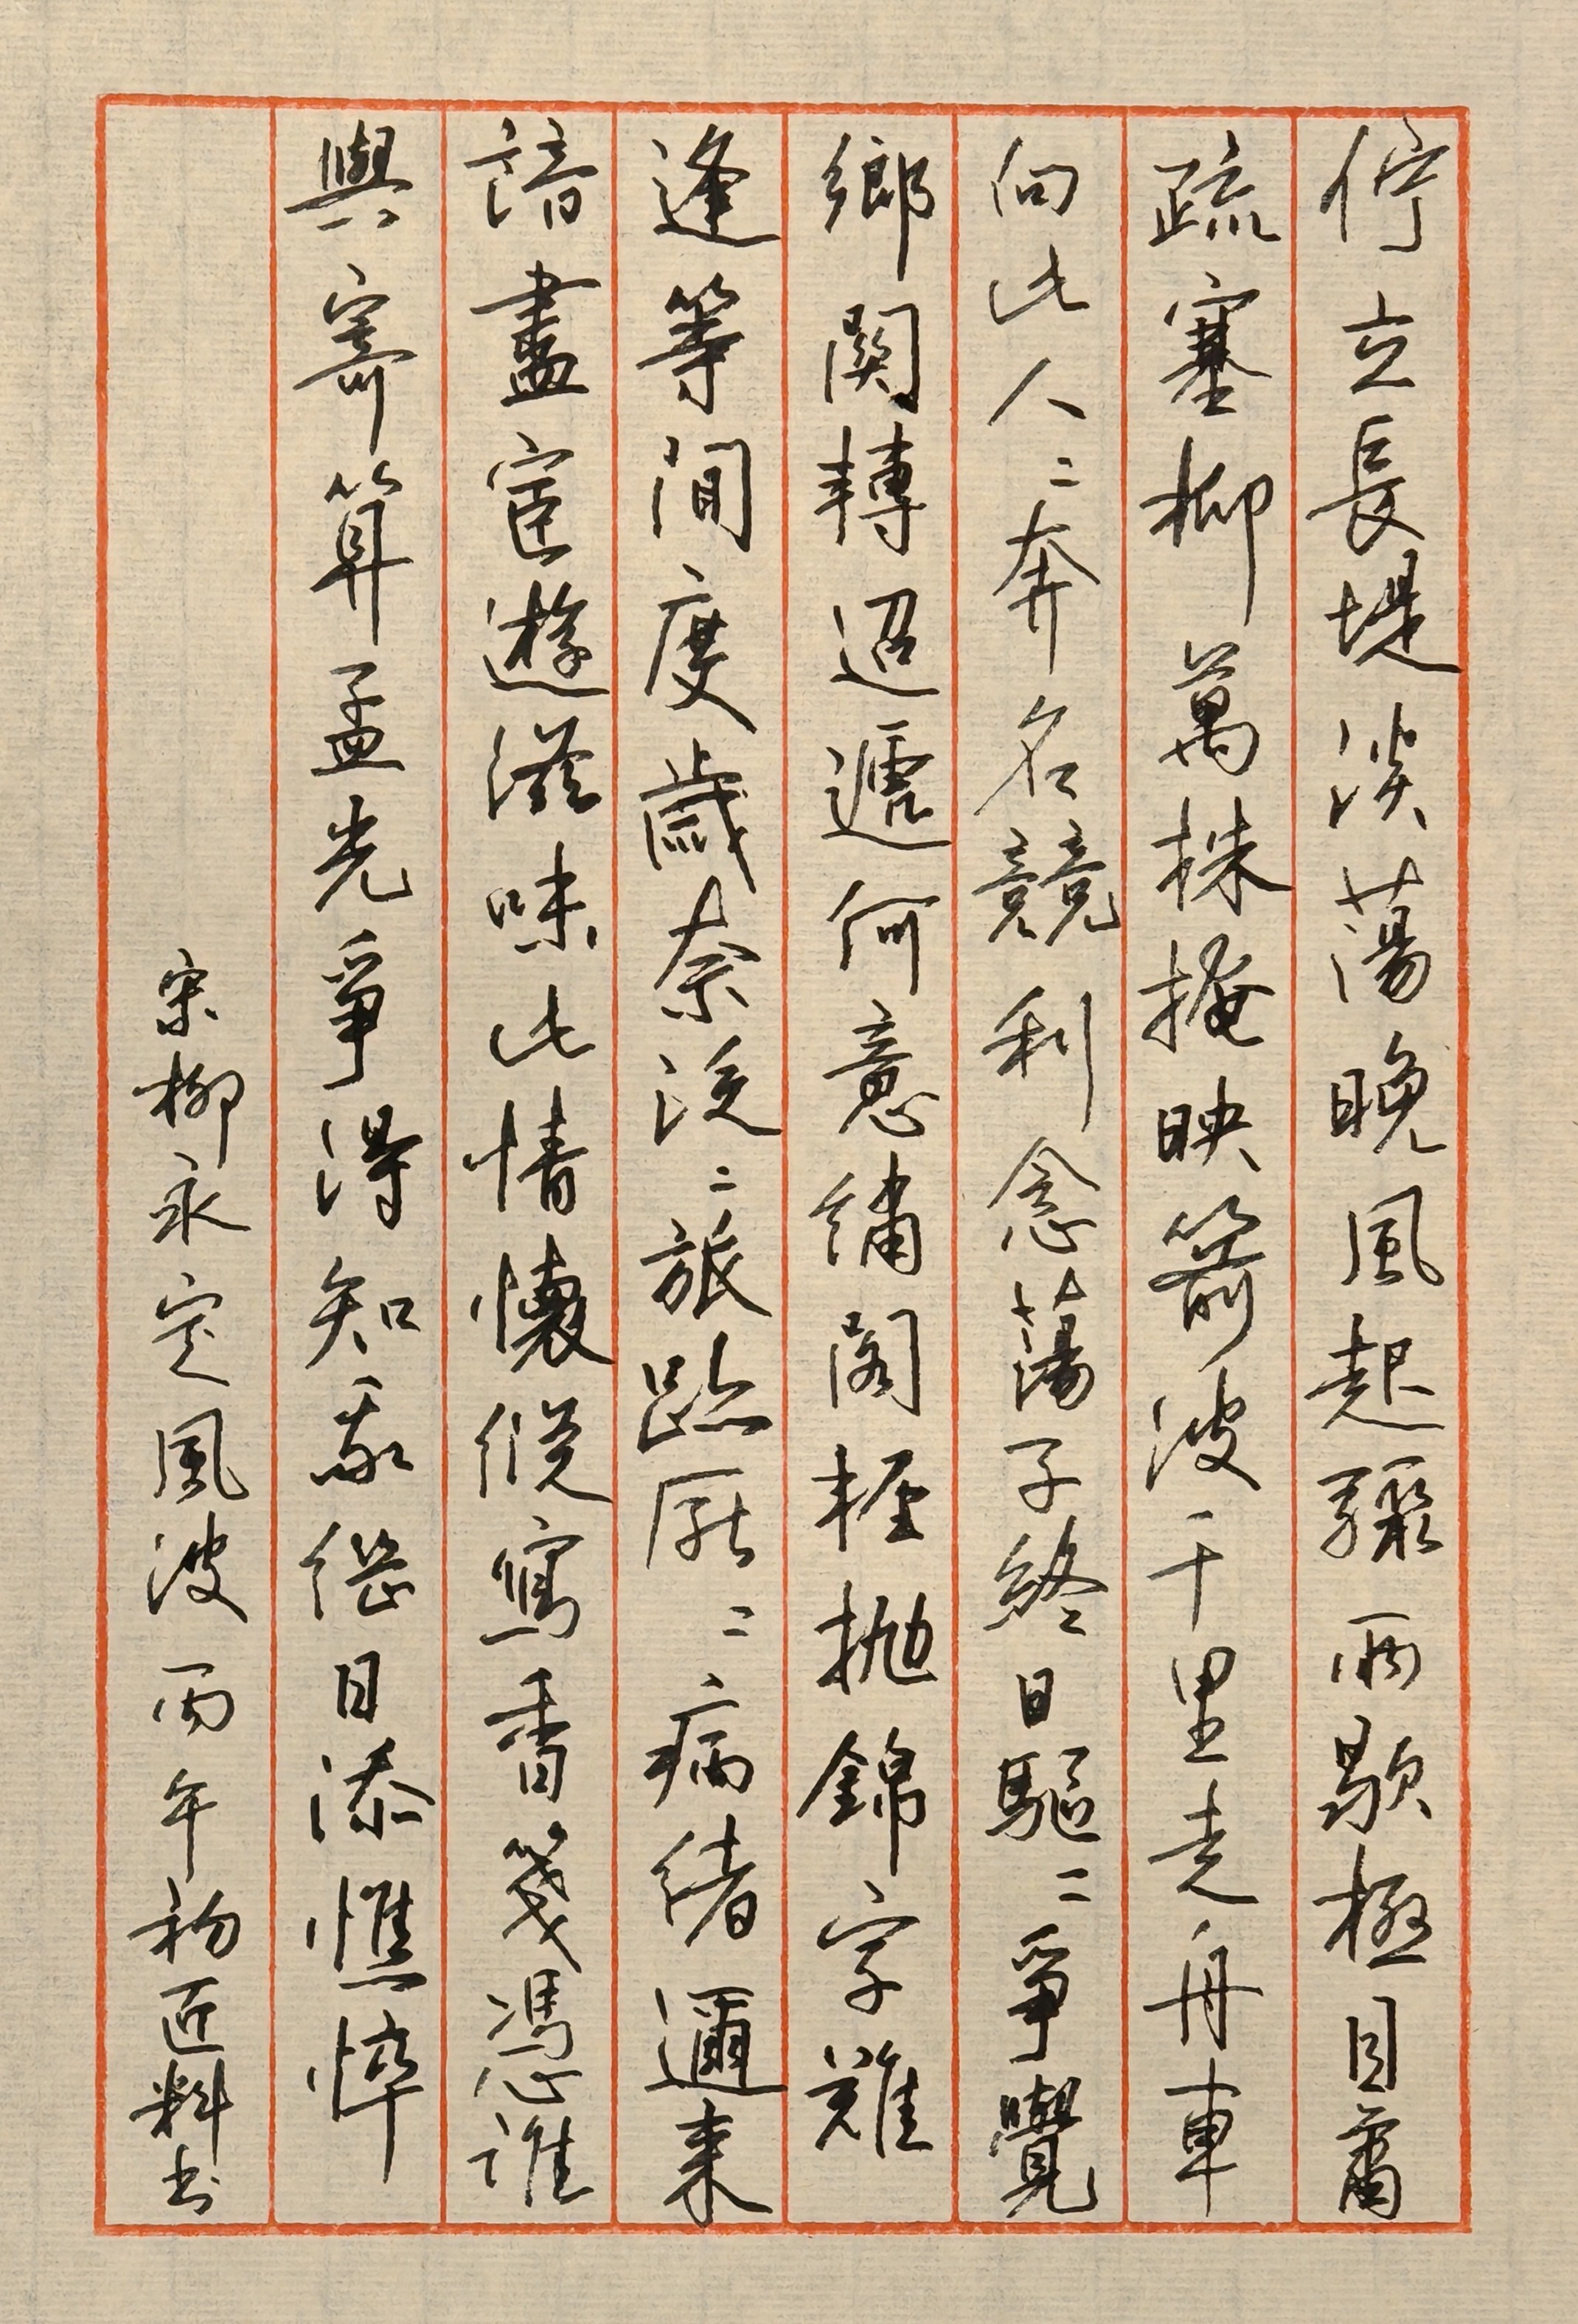 佇立長堤淡蕩晚風起驟雨歇極目蕭
疏塞柳萬株掩映箭波千里走舟車
向此人〻奔名競利念蕩子終日驅〻爭覺
鄉關轉迢遞何意繡閣輕拋錦字難
逢等閒度歲奈泛〻旅跡厭〻病緒邇來
諳盡宦遊滋味此情懷縱寫香箋馮誰
與寄算孟光爭得知我繼日添憔悴
宋柳永定風波丙午初匠料书